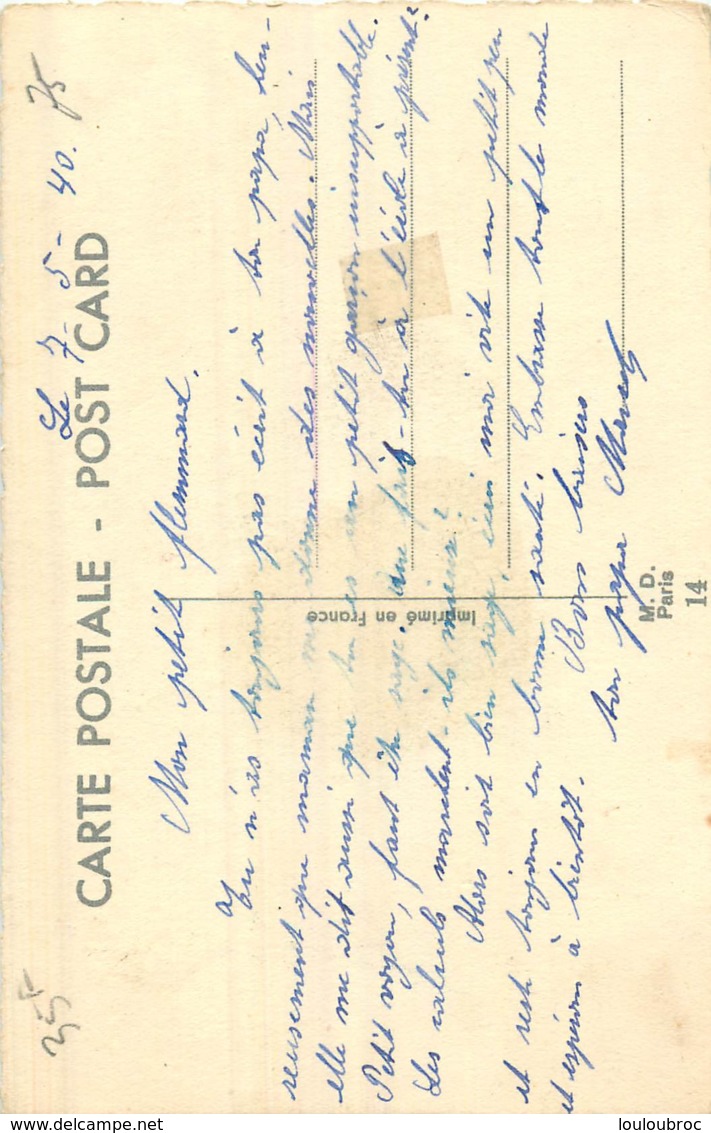 35F
75
CARTE POSTALE - POST CARD
Le 7-5-40.
Mon petit flemmard.
Tu n'as toujours pas écrit à ton papa, heu-
reusement que maman me donne des nouvelles. Mais
elle me dit aussi que tu es un petit garçon insupportable.
Petit voyou, faut être sage. Que fais-tu à l'école à présent?
Les calculs marchent-ils mieux?
Alors soit bien sage, écris moi vite un petit peu
et reste toujours en bonne santé. Embrasse tout le monde
et espérons à bientôt.
Bons baisers
ton papa Marcel
Imprimé en France
M. D.
Paris
14
delcampe.net
louloubroc